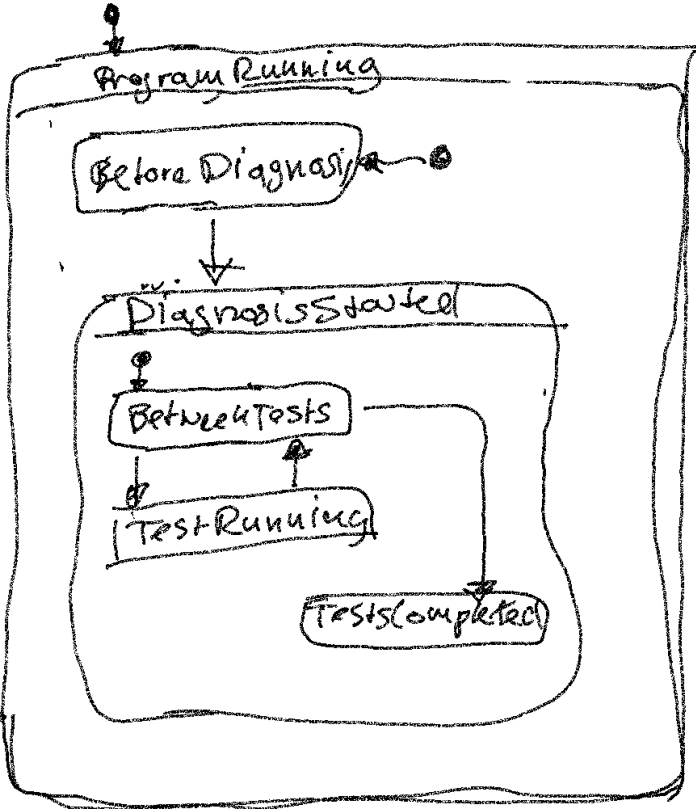 ProgramRunning
BeforeDiagnosis
DiagnosisStarted
BetweenTests
TestRunning
TestsCompleted